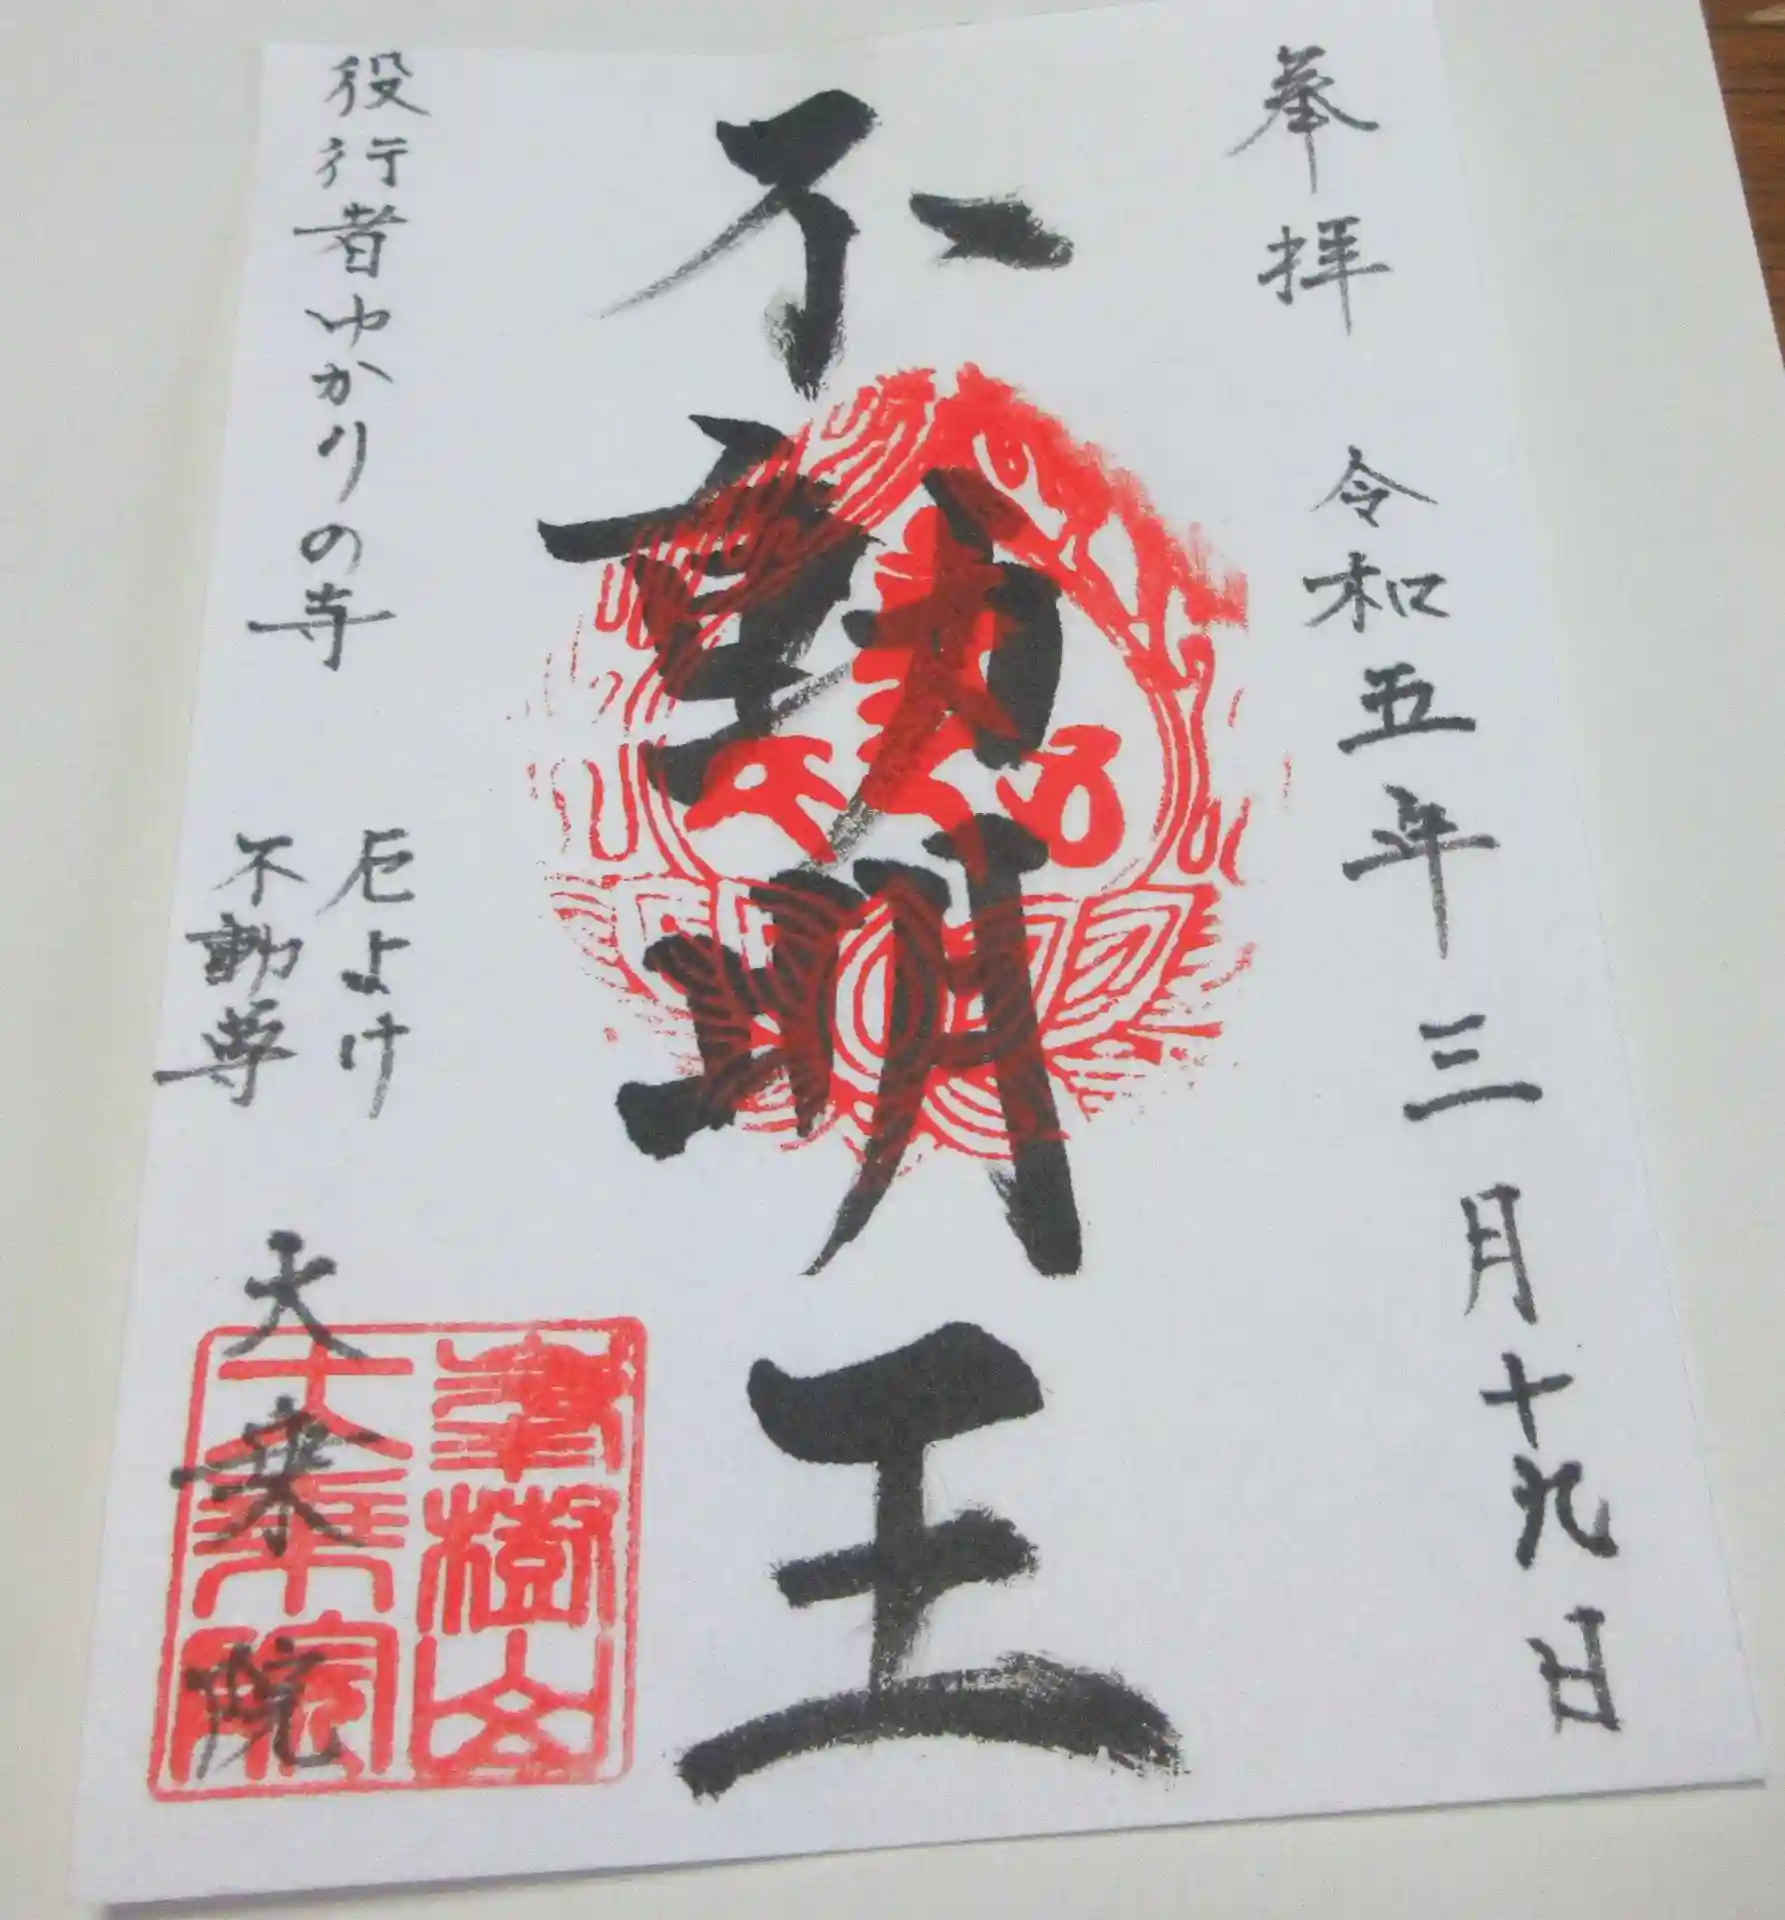 奉拝 令和五年三月十九日
不動明王
役行者ゆかりの寺
厄よけ
不動尊
大乗院
樹山
大乗院